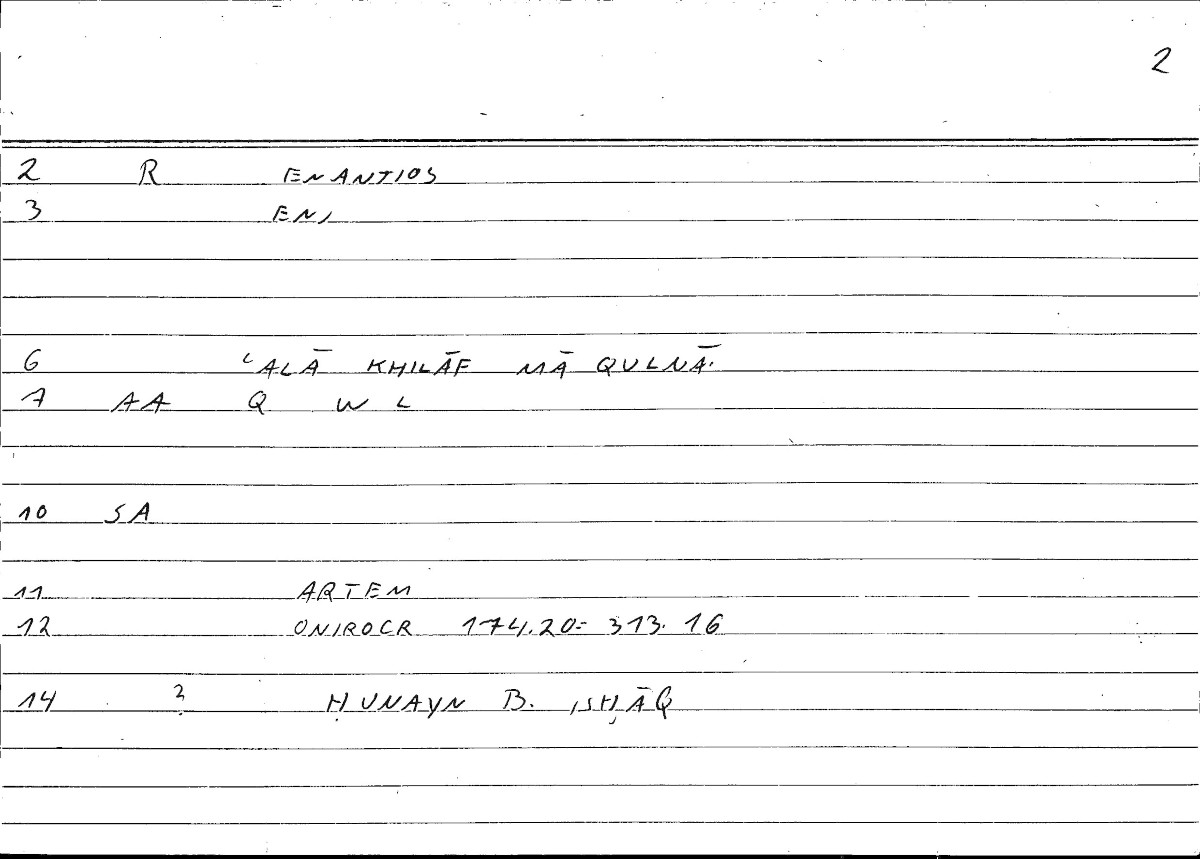 2
2 R ENANTIOS
3 EN,
6 ʿALĀ KHILĀF MĀ QULNĀ.
7 AA Q W L
10 SA
11 ARTEM
12 ONIROCR 174.20= 313.16
14 ? ḤUNAYN B. ISḤĀQ